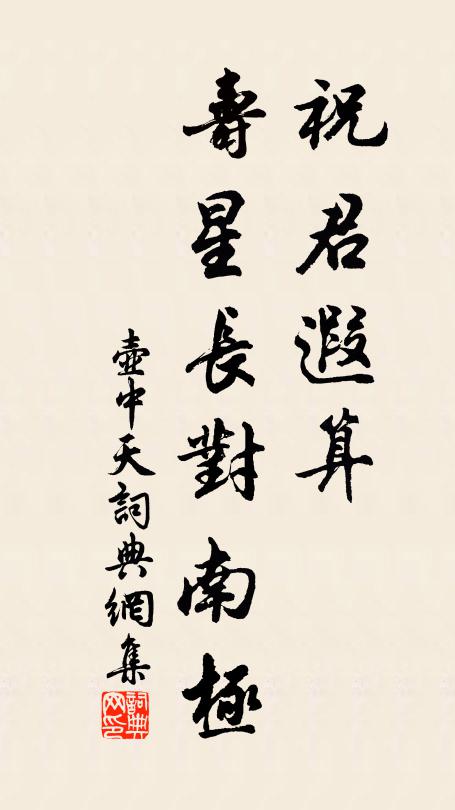 祝君遐算
壽星長對南極
壺中天詞典網集
詞典
网印